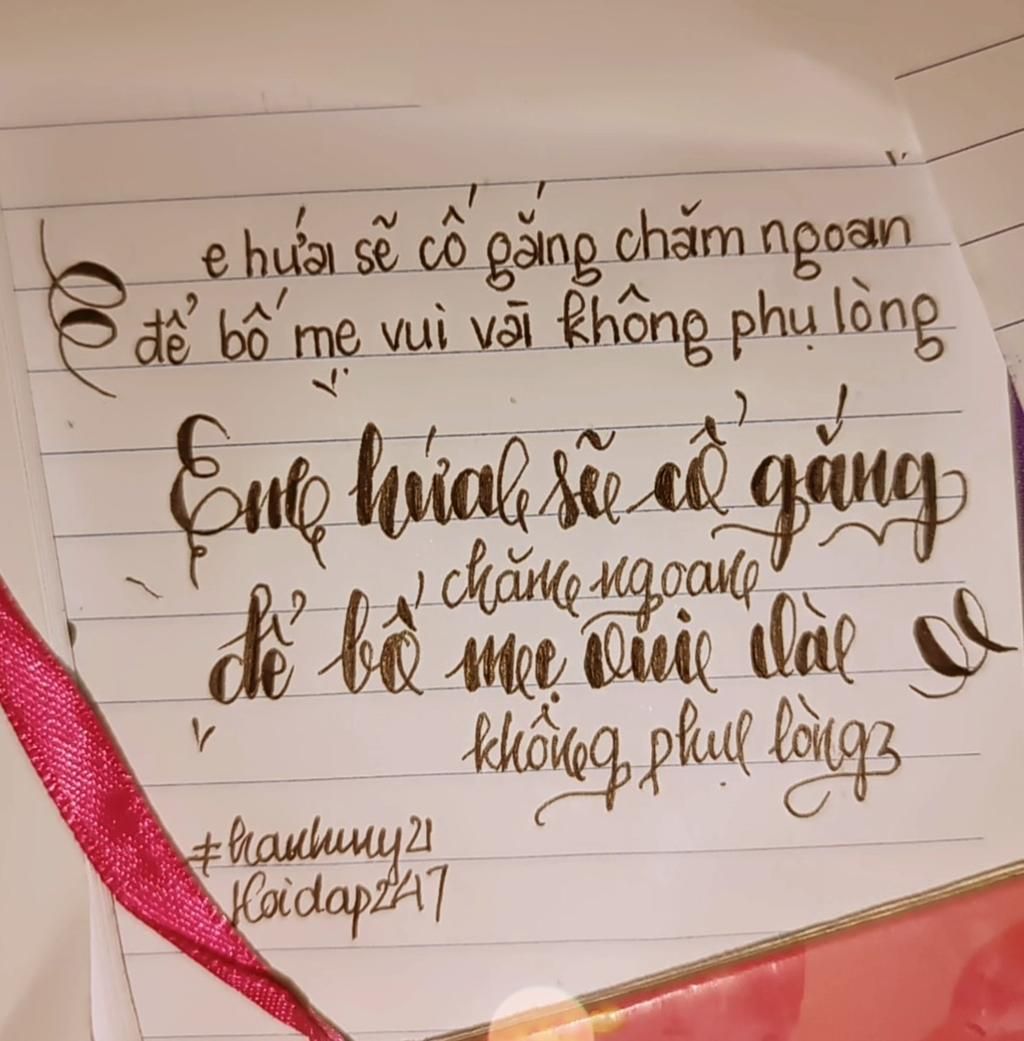 e hứa sẽ cố gắng chăm ngoan
để bố mẹ vui và không phụ lòng
Em hứa sẽ cố gắng
chăm ngoan
để bố mẹ vui và
không phụ lòng
Hoidap247